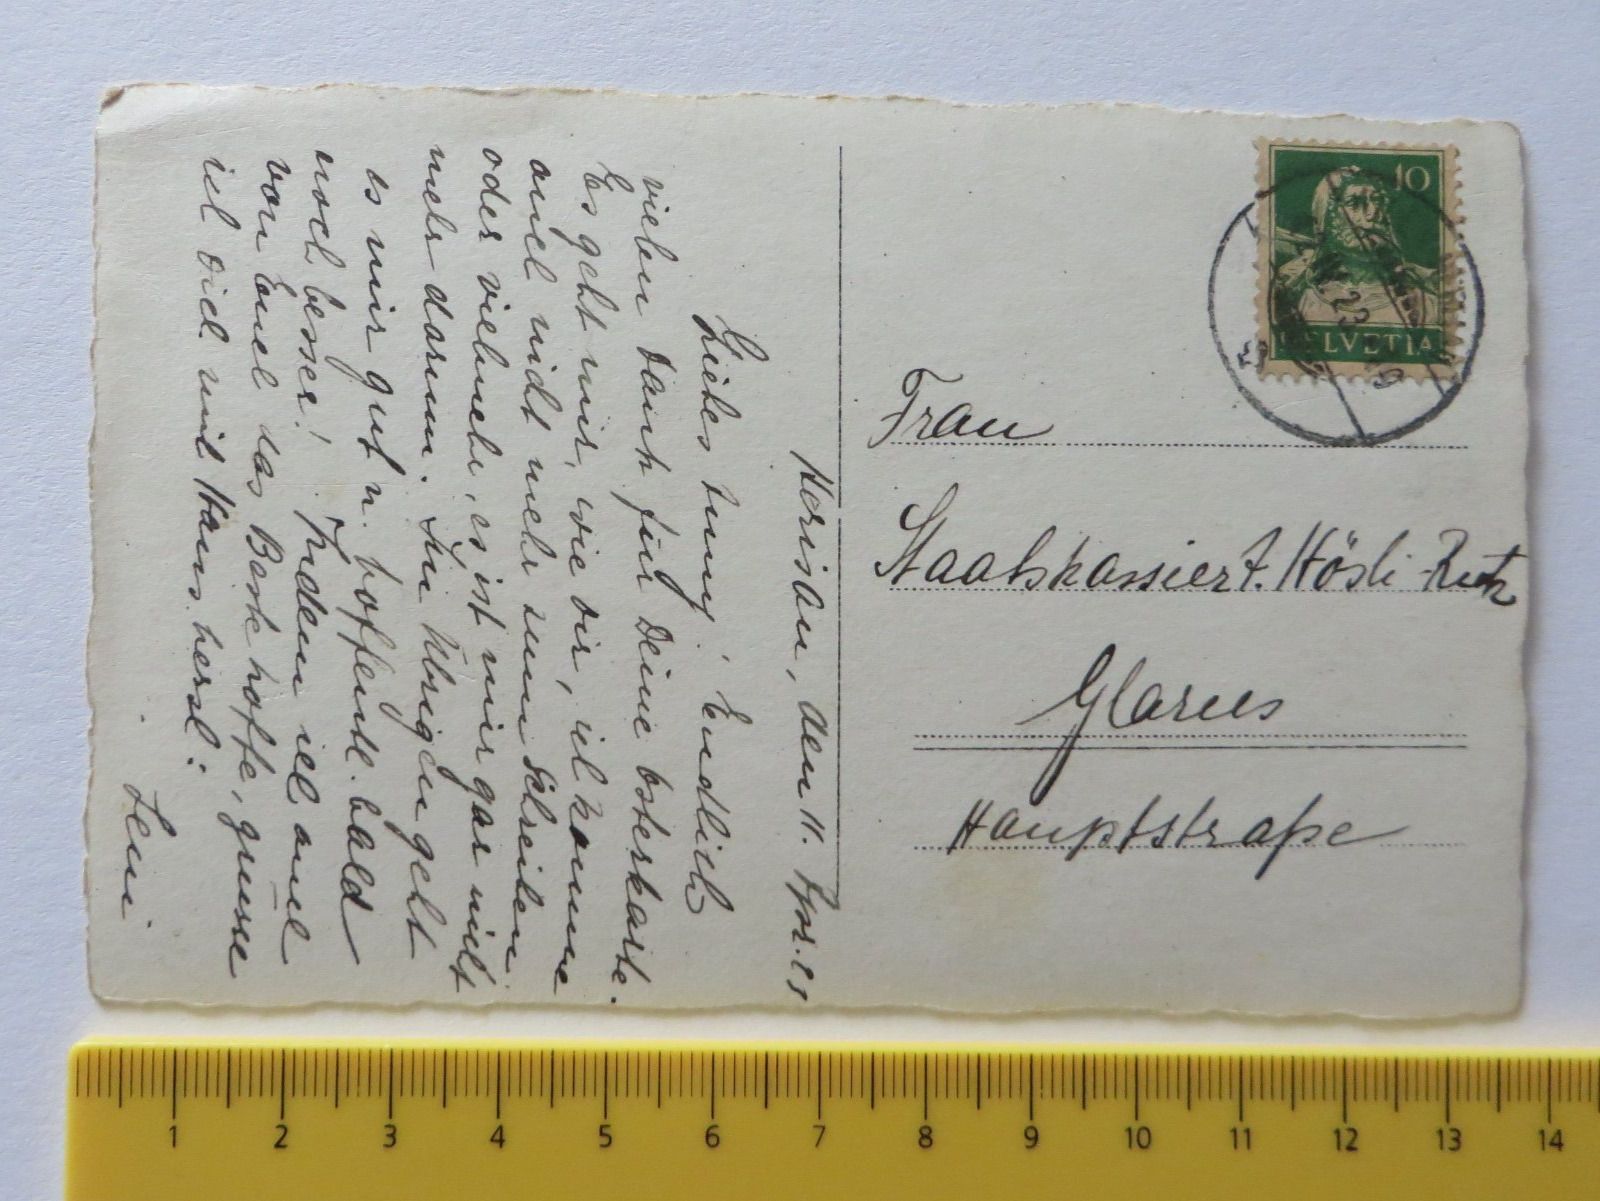 Herisau, den 11. Apr.
Liebes Emmy! Endlich
vielen Dank für Deine Osterkarte.
Es geht mir, wie dir, ich komme
auch nicht mehr zum Schreiben
oder vielmehr, es ist mir gar nicht
mehr darum. Im Übrigen geht
es mir gut u. hoffentl. bald
noch besser! Indem ich auch
von Euch das Beste hoffe, grüsse
ich dich mit Hans herzl.:
Leni
10
HELVETIA
Frau
Staatskassier A. Hösli-Rutz
Glarus
Hauptstraße
1 2 3 4 5 6 7 8 9 10 11 12 13 14